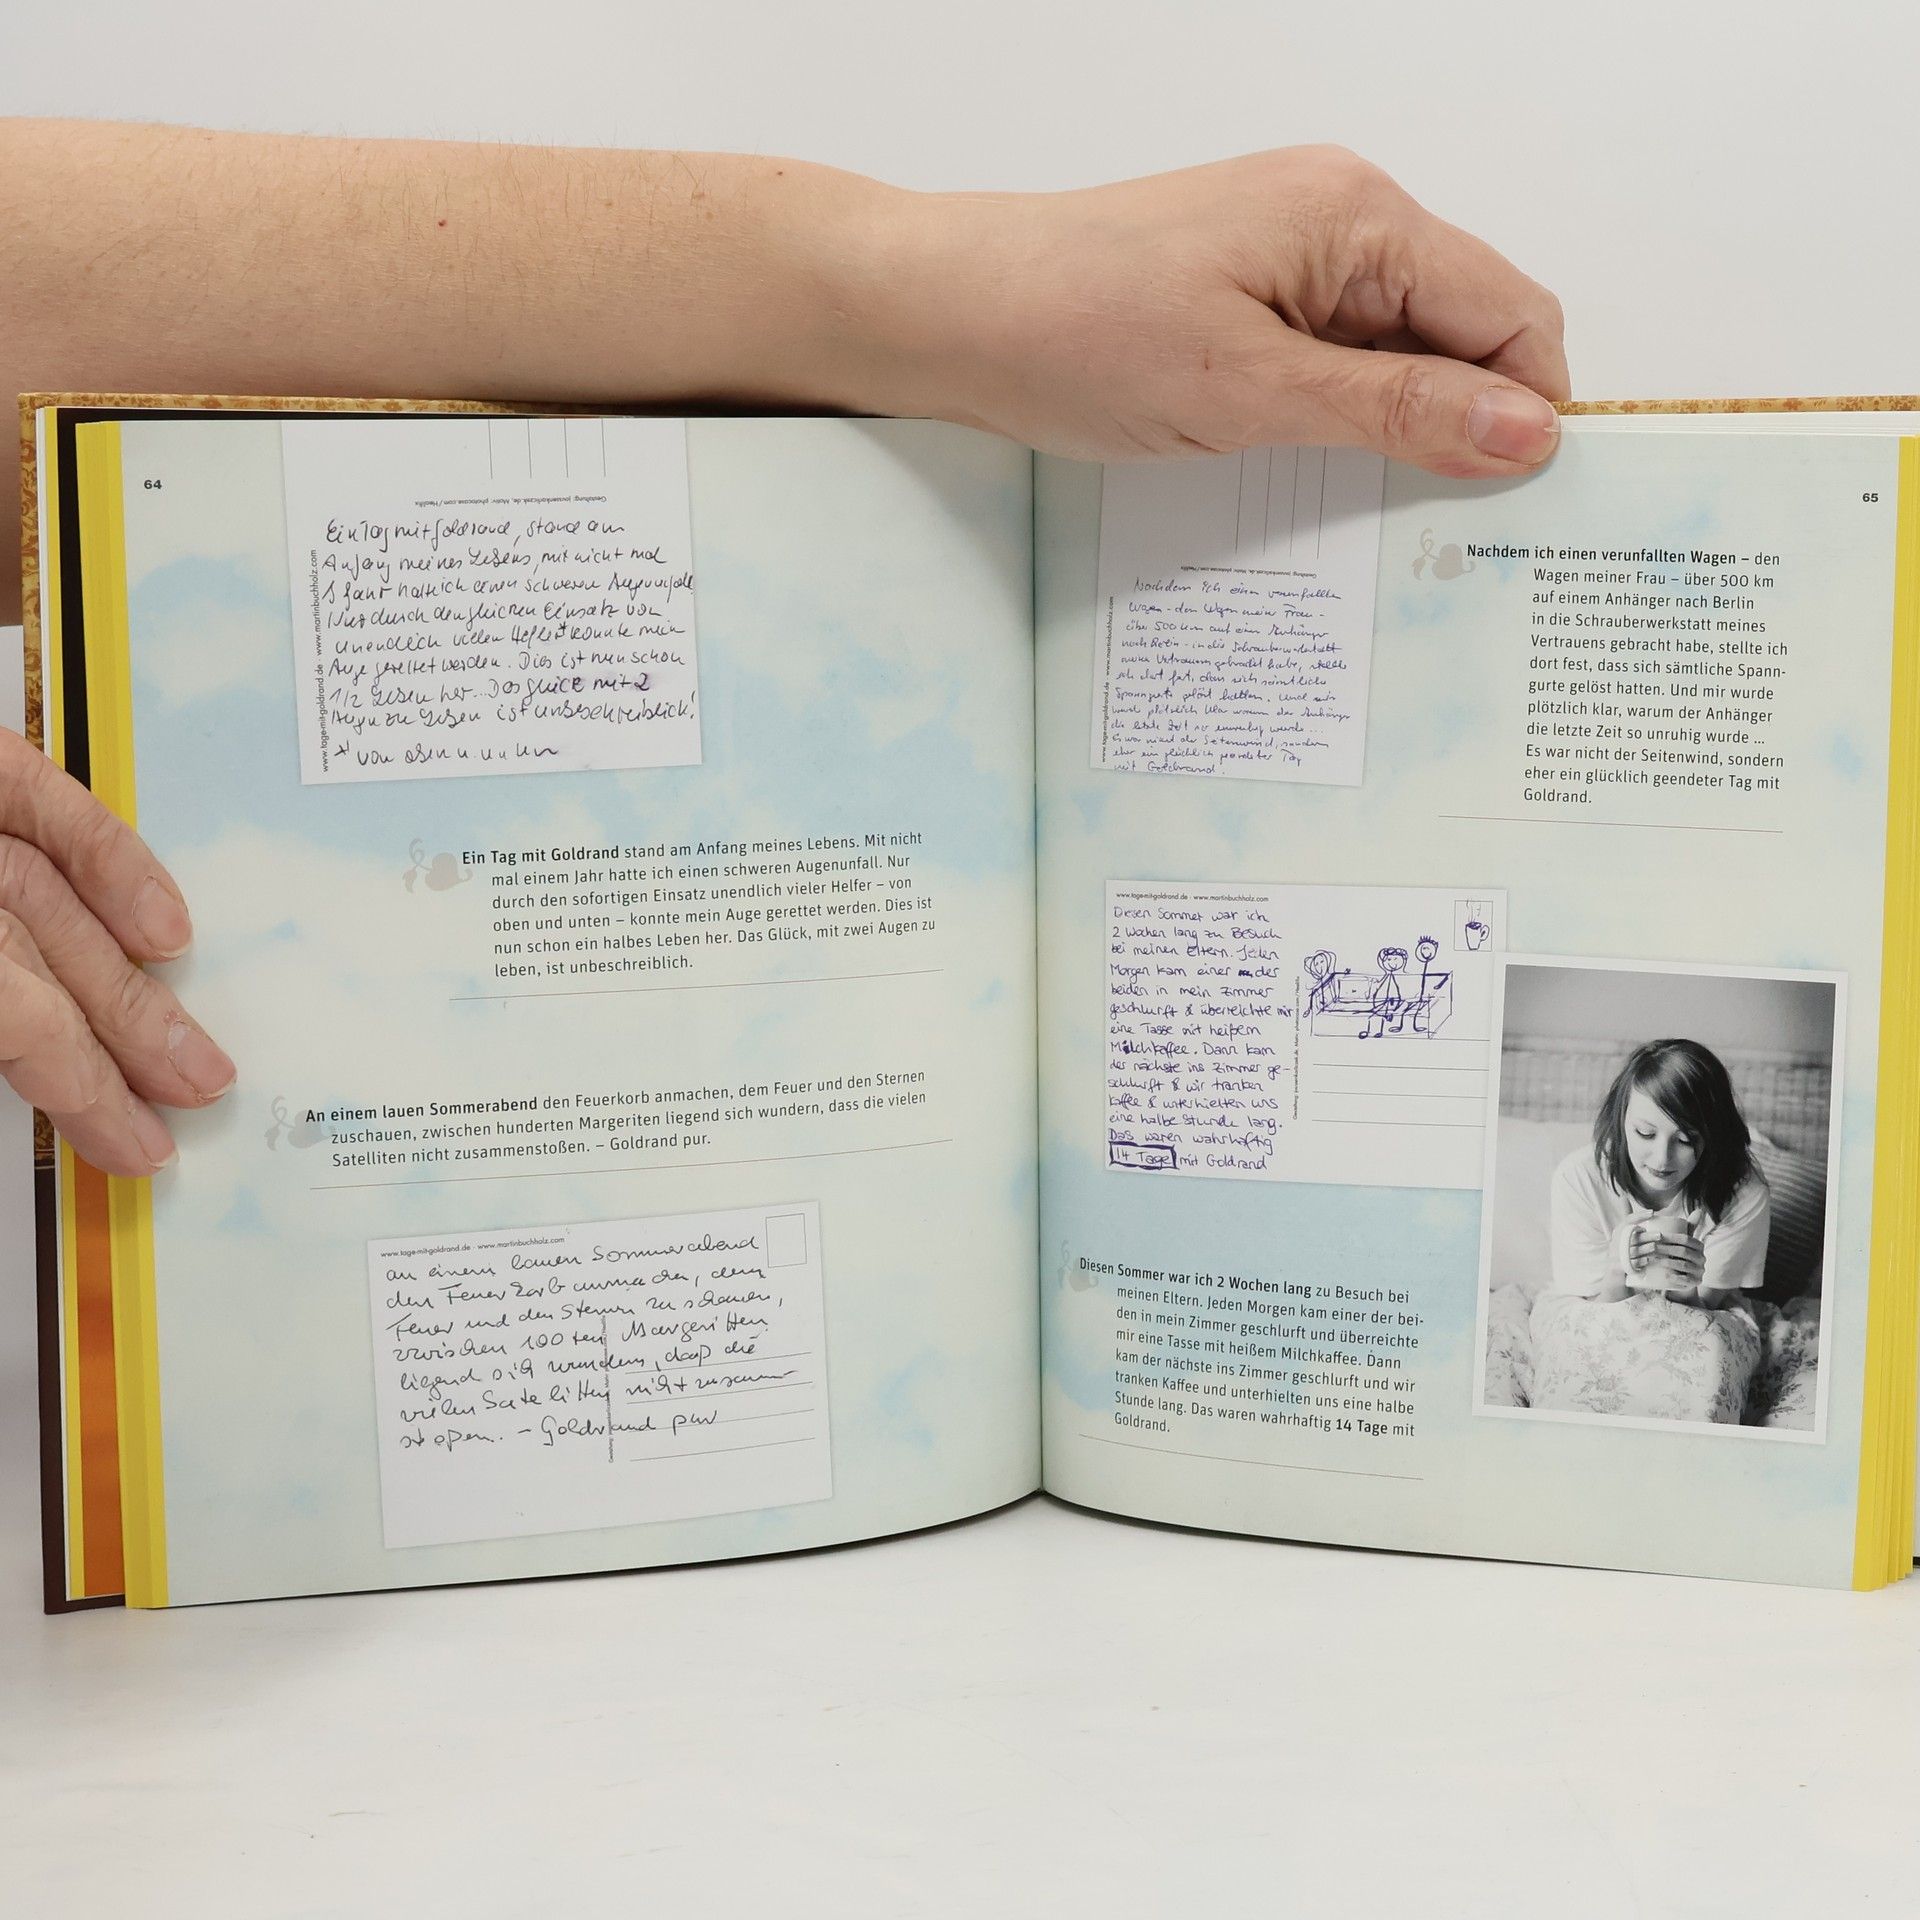 64
Gestaltung: joussenkarliczek.de, Motiv: photocase.com / Hedifix
www.tage-mit-goldrand.de · www.martinbuchholz.com
Ein Tag mit Goldrand, stand am
Anfang meines Lebens, mit nicht mal
1 Jahr hatte ich einen schweren Augenunfall.
Nur durch den Einsatz von
unendlich vielen Helfer* konnte mein
Auge gerettet werden. Dies ist nun schon
1/2 Leben her... Das Glück mit 2
Augen zu Leben ist unbeschreiblich!
* von oben u. unten
Ein Tag mit Goldrand stand am Anfang meines Lebens. Mit nicht
mal einem Jahr hatte ich einen schweren Augenunfall. Nur
durch den sofortigen Einsatz unendlich vieler Helfer – von
oben und unten – konnte mein Auge gerettet werden. Dies ist
nun schon ein halbes Leben her. Das Glück, mit zwei Augen zu
leben, ist unbeschreiblich.
An einem lauen Sommerabend den Feuerkorb anmachen, dem Feuer und den Sternen
zuschauen, zwischen hunderten Margeriten liegend sich wundern, dass die vielen
Satelliten nicht zusammenstoßen. – Goldrand pur.
www.tage-mit-goldrand.de · www.martinbuchholz.com
an einem lauen Sommerabend
den Feuerkorb anmachen, dem
Feuer und den Sternen zuschauen,
zwischen 100ten Margeritten
liegend sich wundern, daß die
vielen Satelitten nicht zusammen-
stoßen. – Goldrand pur
65
Gestaltung: joussenkarliczek.de, Motiv: photocase.com / Hedifix
www.tage-mit-goldrand.de · www.martinbuchholz.com
Nachdem ich einen verunfallten
Wagen - den Wagen meiner Frau -
über 500 km auf einem Anhänger
nach Berlin - in die Schrauberwerkstatt
meines Vertrauens gebracht habe, stellte
ich dort fest, dass sich sämtliche
Spanngurte gelöst hatten. Und mir
wurde plötzlich klar warum der Anhänger
die letzte Zeit so unruhig wurde ...
Es war nicht der Seitenwind, sondern
eher ein glücklich geendeter Tag
mit Goldrand.
Nachdem ich einen verunfallten Wagen – den
Wagen meiner Frau – über 500 km
auf einem Anhänger nach Berlin
in die Schrauberwerkstatt meines
Vertrauens gebracht habe, stellte ich
dort fest, dass sich sämtliche Spann-
gurte gelöst hatten. Und mir wurde
plötzlich klar, warum der Anhänger
die letzte Zeit so unruhig wurde ...
Es war nicht der Seitenwind, sondern
eher ein glücklich geendeter Tag mit
Goldrand.
www.tage-mit-goldrand.de · www.martinbuchholz.com
Diesen Sommer war ich
2 Wochen lang zu Besuch
bei meinen Eltern. Jeden
Morgen kam einer der
beiden in mein Zimmer
geschlurft & überreichte mir
eine Tasse mit heißem
Milchkaffee. Dann kam
der nächste ins Zimmer ge-
schlurft & wir tranken
Kaffee & unterhielten uns
eine halbe Stunde lang.
Das waren wahrhaftig
14 Tage mit Goldrand
Diesen Sommer war ich 2 Wochen lang zu Besuch bei
meinen Eltern. Jeden Morgen kam einer der bei-
den in mein Zimmer geschlurft und überreichte
mir eine Tasse mit heißem Milchkaffee. Dann
kam der nächste ins Zimmer geschlurft und wir
tranken Kaffee und unterhielten uns eine halbe
Stunde lang. Das waren wahrhaftig 14 Tage mit
Goldrand.